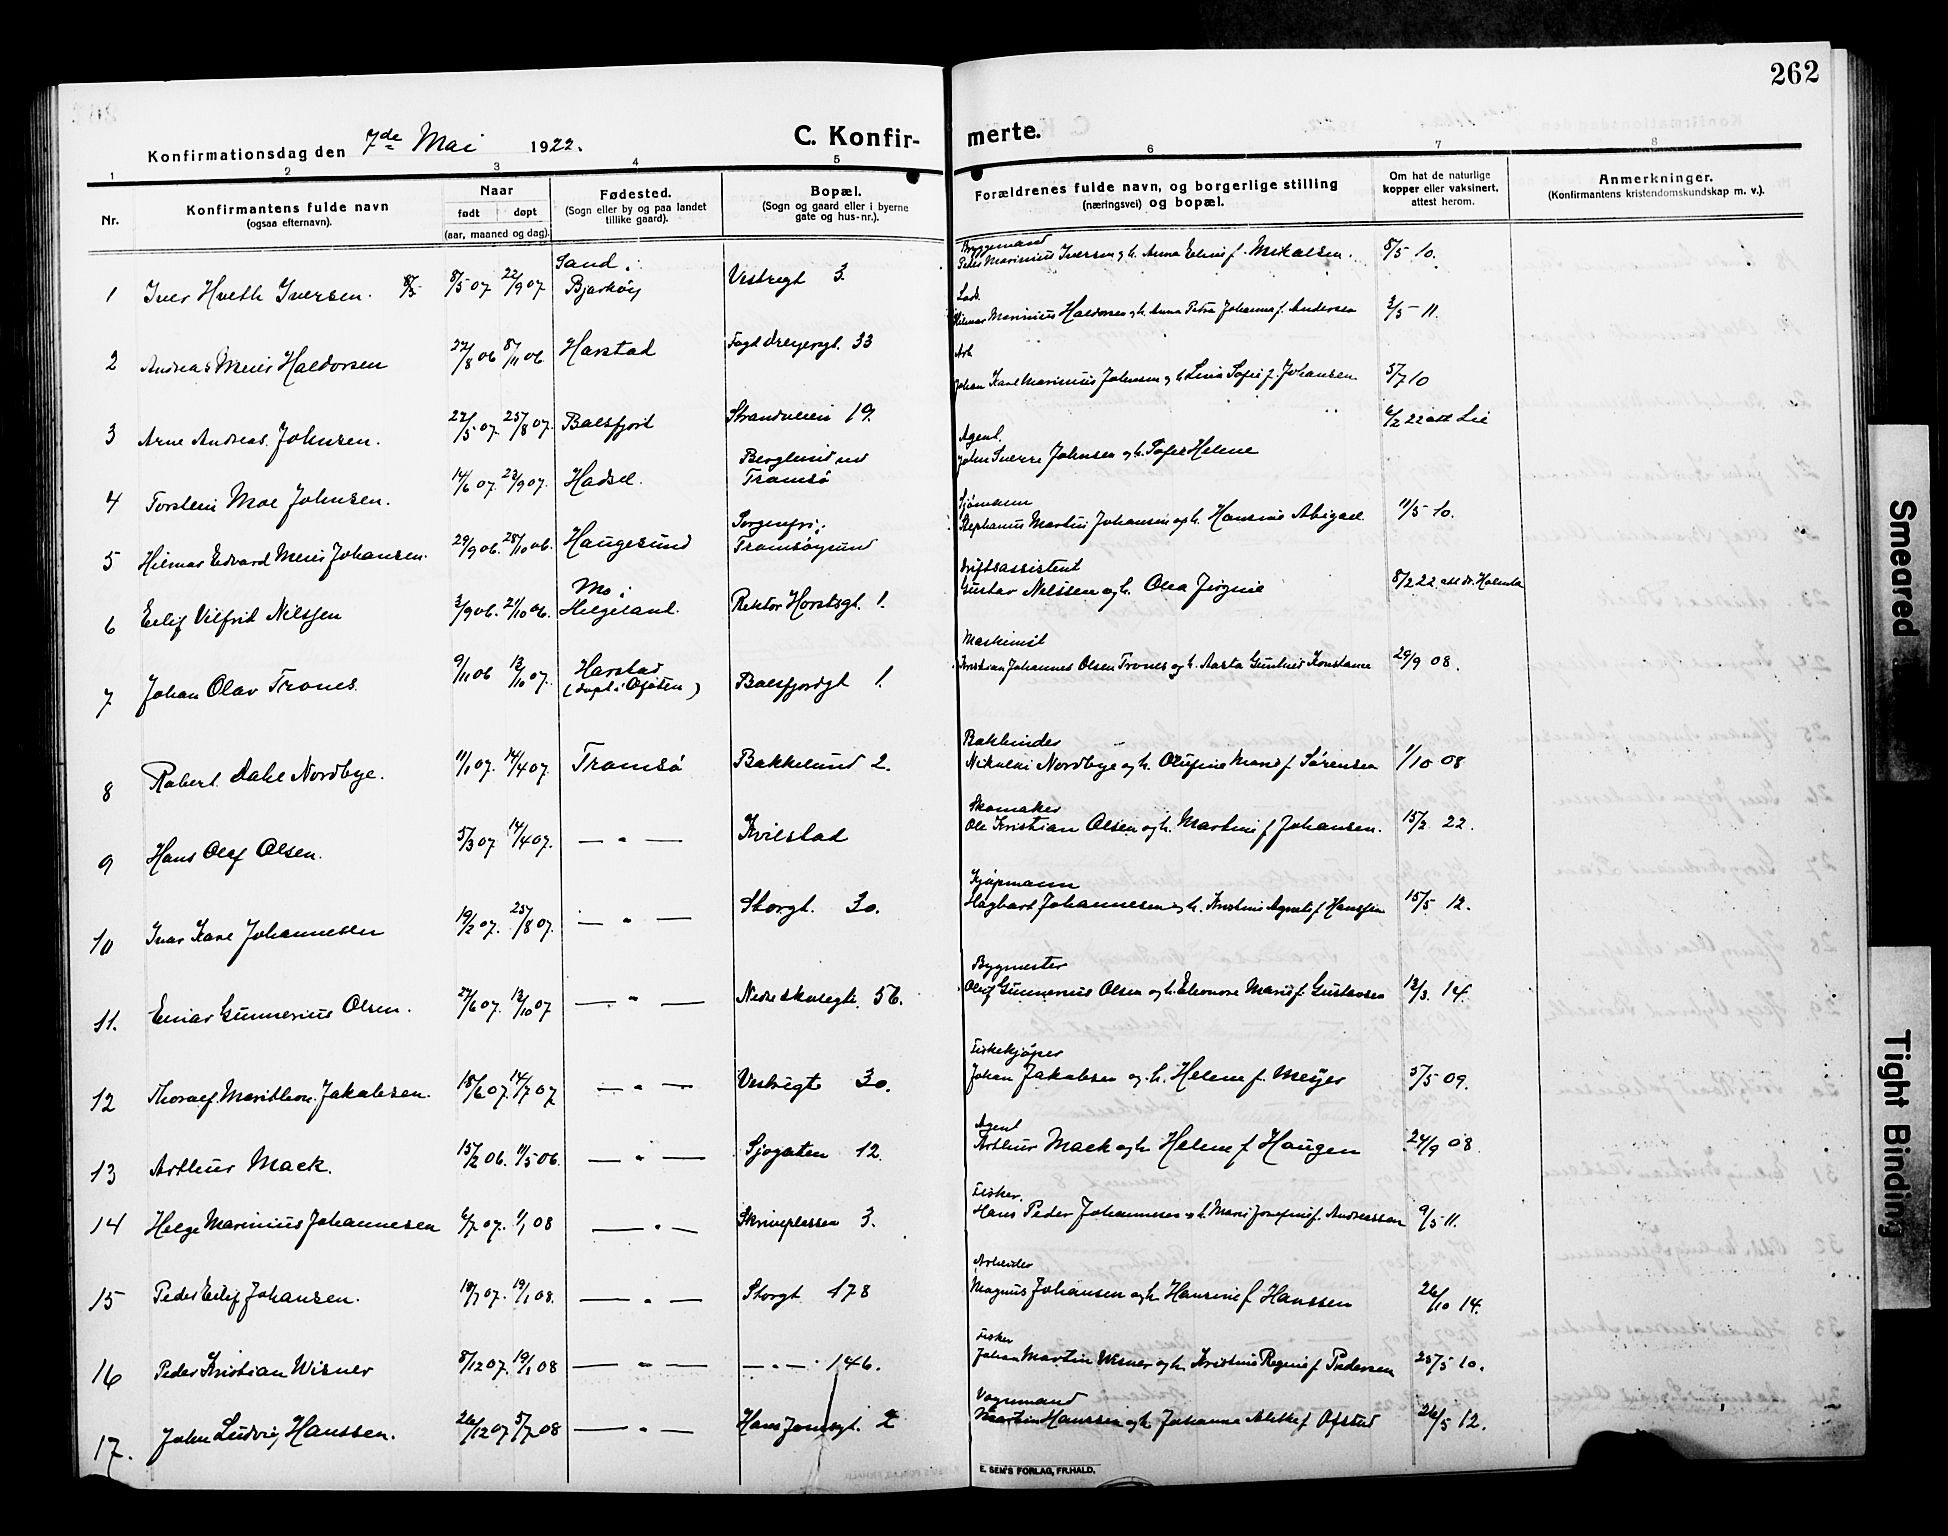 262
Konfirmationsdag den 7de Mai 1922.
C. Konfir-
merte.
1 2 3 4 5 6 7 8
Nr.
Konfirmantens fulde navn
(ogsaa efternavn).
Naar
født døpt
(aar, maaned og dag).
Fødested.
(Sogn eller by og paa landet
tillike gaard).
Bopæl.
(Sogn og gaard eller i byerne
gate og hus-nr.).
Forældrenes fulde navn, og borgerlige stilling
(næringsvei) og bopæl.
Om hat de naturlige
kopper eller vaksinert,
attest herom.
Anmerkninger.
(Konfirmantens kristendomskundskap m. v.).
Sand i
Byggemand
1 Iver Hveth Iversen. 8/5 8/5 07 22/9 07 Bjarkøy Vestregt 3. Peder Marinius Iversen og h. Anna Eline f. Mikalsen. 8/5 10.
2 Andreas Meier Haldorsen 22/8 06 8/11 06 Harstad Fogd Dreyersgt. 33 Hilmar Marinius Haldorsen og h. Anna Petra Johanna f. Andersen 3/5 11.
Arb
3 Arne Andreas Johnsen. 22/5 07. 25/8 07. Balsfjord Strandveien 19. Johan Karl Marinius Johnsen og h. Lina Sofie f. Johansen 5/7 10
Agent.
4 Torstein Moe Johnsen. 14/6 07. 22/9 07. Hadsel. Berglund ved Tromsø John Sverre Johnsen og h. Sofie Helene 6/2 22 att Lie
Sjømann
5 Hilmar Edvard Meier Johansen. 29/9 06. 28/10 06. Haugesund Sorgenfri, Tromsøysund Stephanus Martin Johansen og h. Hansine Abigael 11/5 10.
Driftsassistent
6 Eilif Vilfrid Nilssen 3/9 06. 21/10 06. Mo i Helgeland. Rektor Horstsgt. 1. Gustav Nilssen og h. Olea Jørgine 8/2 22 att dr. Holmboe
Maskinist
7 Johan Olav Trones. 9/11 06 13/10 07. Harstad (døpt i Ofoten) Balsfjordgt 1. Kristian Johannes Olsen Trones og h. Aasta Gunhild Konstance 29/9 08.
Bokbinder
8 Robert Dahl Nordbye. 11/1 07. 14/4 07. Tromsø Bakkelund 2. Nikolai Nordbye og h. Olufine Marie f. Sørensen 1/10 08
Skomaker
9 Hans Olaf Olsen. 5/3 07 14/4 07. — " — Kvilstad Ole Kristian Olsen og h. Martine f. Johansen. 15/2 22.
Kjøpmann
10 Ivar Kare Johannesen 19/2 07. 25/8 07. — " — Storgt. 30. Hagbart Johannesen og h. Kristine Agnete f. Hanssen 15/5 12.
Bygmester
11. Einar Gunnerius Olsen. 27/6 07. 13/10 07 — " — Nedre skolegt. 56. Oluf Gunnerius Olsen og h. Eleonora Marie f. Gustavsen 13/3. 14.
Fiskekjøper
12 Thoralf Marithon Jakobsen. 18/6 07. 14/7 07 — " — Vestregt 30. Johan Jakobsen og h. Helene f. Meyer 5/5 09.
Agent
13 Arthur Mack. 15/2 06. 11/5 06. — " — Sjøgaten 12. Arthur Mack og h. Helene f. Haugen 24/9 08.
Fisker.
14 Helge Marinius Johannesen 6/7 07. 1/1 08 — " — Skriverplassen 3. Hans Peder Johannesen og h. Marie Josefine f. Andreassen 9/5 11.
Arbeider
15 Peder Eilif Johansen. 18/7 07. 19/1 08. — " — Storgt 178 Magnus Johansen og h. Hansine f. Hanssen 26/10 14.
Fisker
16 Peder Kristian Wisner 8/12 07. 19/1 08 — " — — " — 146. Johan Martin Wisner og h. Kristine Regine f. Pedersen 25/5 10.
Vognmand
17. John Ludvig Hanssen. 26/12 07 5/7 08 — " — Hans Jonsgt. 2 Martin Hanssen og h. Johanna Aletke f. Ofstad 26/5 12.
E. SEM'S FORLAG, FR.HALD.
Smeared
Tight Binding